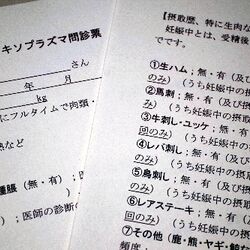 キソプラズマ問診票
さん
年 月
kg
にフルタイムで肉類・
熱など
腫脹（無・有）；医
有）；
；医師の診断の
【摂取歴、特に生肉な
妊娠中とは、受精後
です。
①生ハム；無・有（及び
のみ）（うち妊娠中の摂
②馬刺；無・有（及び
のみ）（うち妊娠中の摂取
③牛刺し・ユッケ；無・有
回のみ）（うち妊娠中の
④レバ刺し；無・有（及び
のみ）（うち妊娠中の摂
⑤鳥刺し；無・有（及び
のみ）（うち妊娠中の摂取
⑥レアステーキ；無・有
回のみ）（うち妊娠中の
⑦その他（鹿・熊・ヤギ・
頻度：